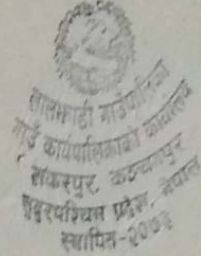 लालझाडी गाउँपालिका
गाउँ कार्यपालिकाको कार्यालय
शंकरपुर, कञ्चनपुर
सुदूरपश्चिम प्रदेश, नेपाल
स्थापित-२०७३